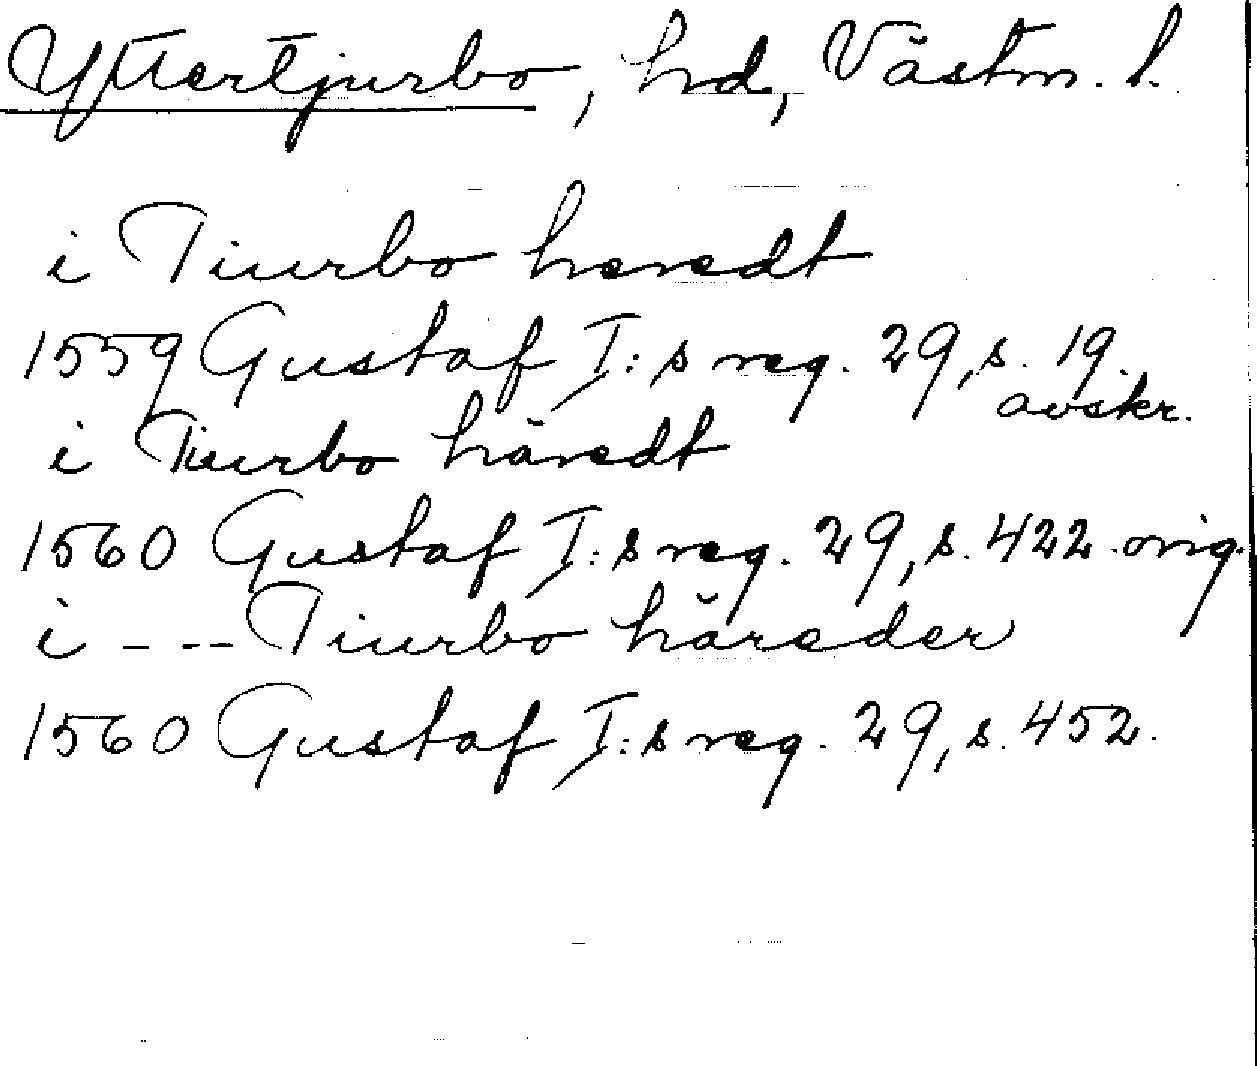 Yttertjurbo, hd, Västm. l.
i Tiurbo heredt
1559 Gustaf I:s reg. 29, s. 19.
avskr.
i Tiurbo häredt
1560 Gustaf I:s reg. 29, s. 422. orig.
i - -- Tiurbo häreder
1560 Gustaf I:s reg. 29, s. 452.